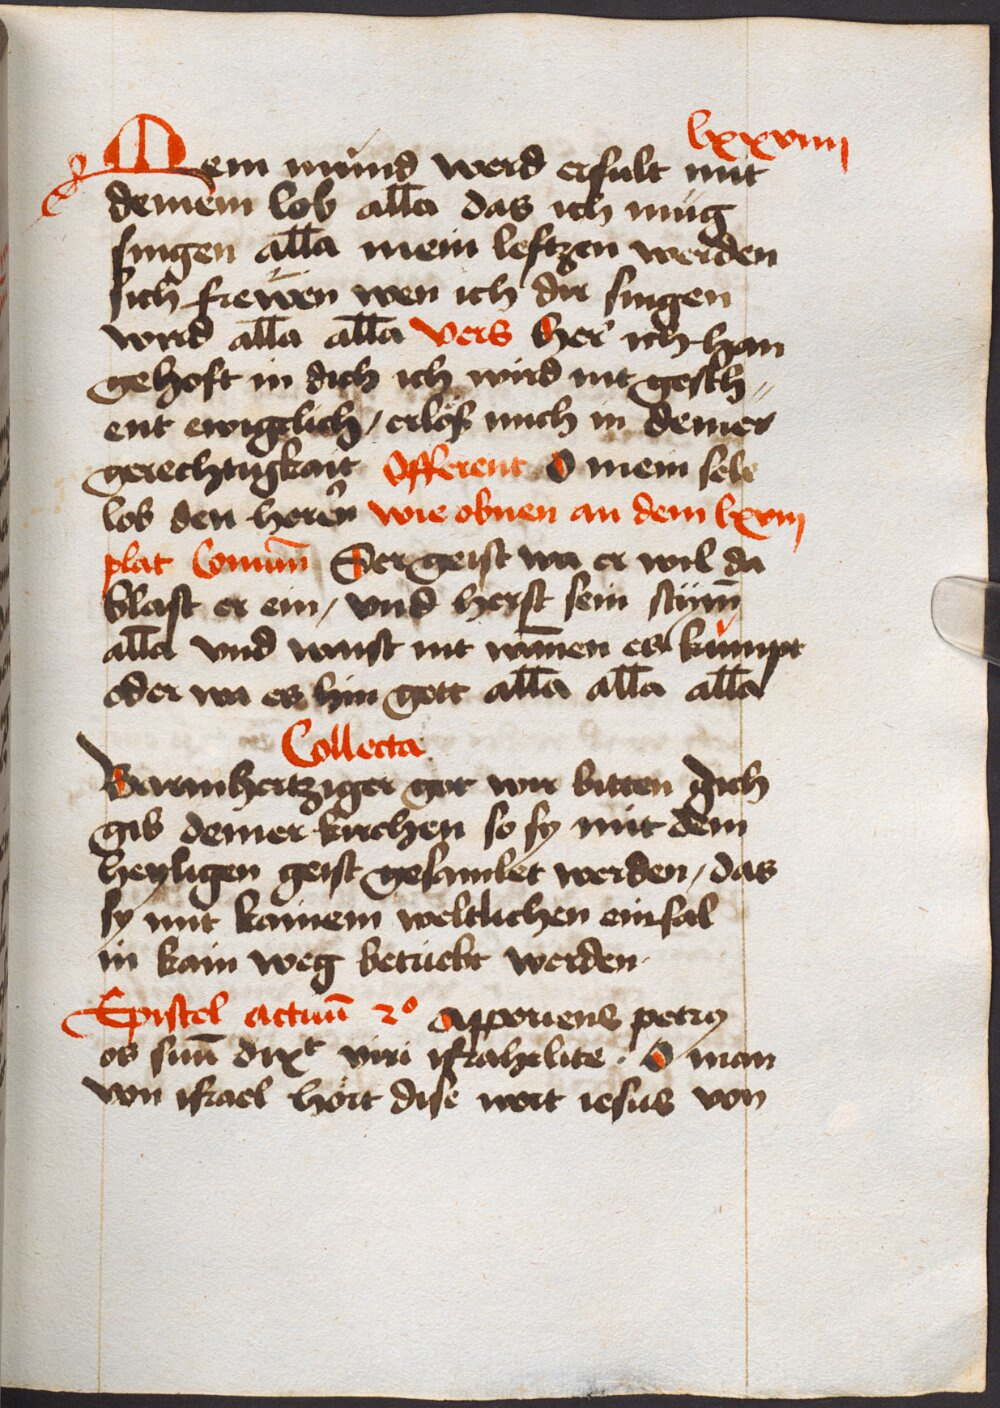 lxxviiij
Mein mund werd erfult mit
deinem lob all̅a das ich müg
singen all̅a mein lefftzen werden
sich frewen wen ich dir singen
wird all̅a all̅a vers her ich han
gehoft in dich ich wird nit gesch〃
ent ewigclich / erlös mich in deiner
gerechtigkait Offerent O mein sele
lob den heren wie obnen an dem lxviij
plat Comun̅ Der geist wa er wil da
blast er ein / vnd herst sein stym̅
all̅a vnd waist nit wan̅en es kumpt
oder wa es hin gett all̅a all̅a all̅a
Collecta
Barmhertziger got wir bitten dich
gib deiner kirchen so sy mit dem
heyligen geist gesamlet werden / das
sy mit kainem weltlichen einfal
in kain weg betriebt werden
Epistel actuu̅ 2º Apperiens petrus
os suu̅ dixt viri israhelite · O man
von israel hört dise wort iesus von